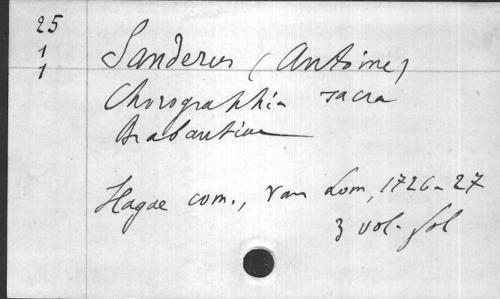 25
1
1
Sanderus (Antoine)
Chorographia sacra
Brabantiae
Hagae com., Van Lom, 1726-27
3 vol. fol